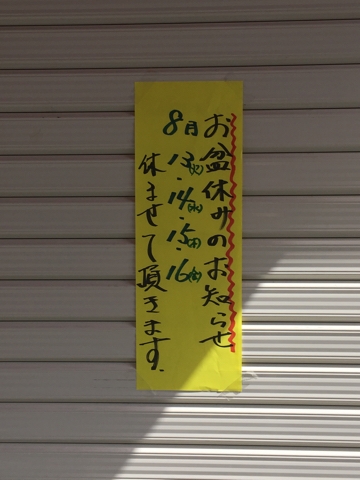 お盆休みのお知らせ
8月13(火)・14(水)・15(木)・16(金)
休ませて頂きます.